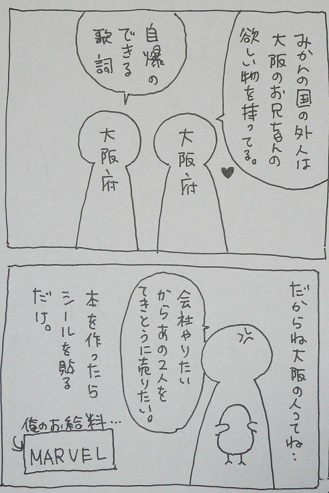 みかんの国の外人は
大阪のお兄ちゃんの
欲しい物を持ってる。
自爆の
できる
歌詞
大阪府
大阪府
だからね大阪の人ってね…
会社やりたい
からあの2人を
てきとうに売りたい。
本を作ったら
シールを貼る
だけ。
俺のお給料…
MARVEL